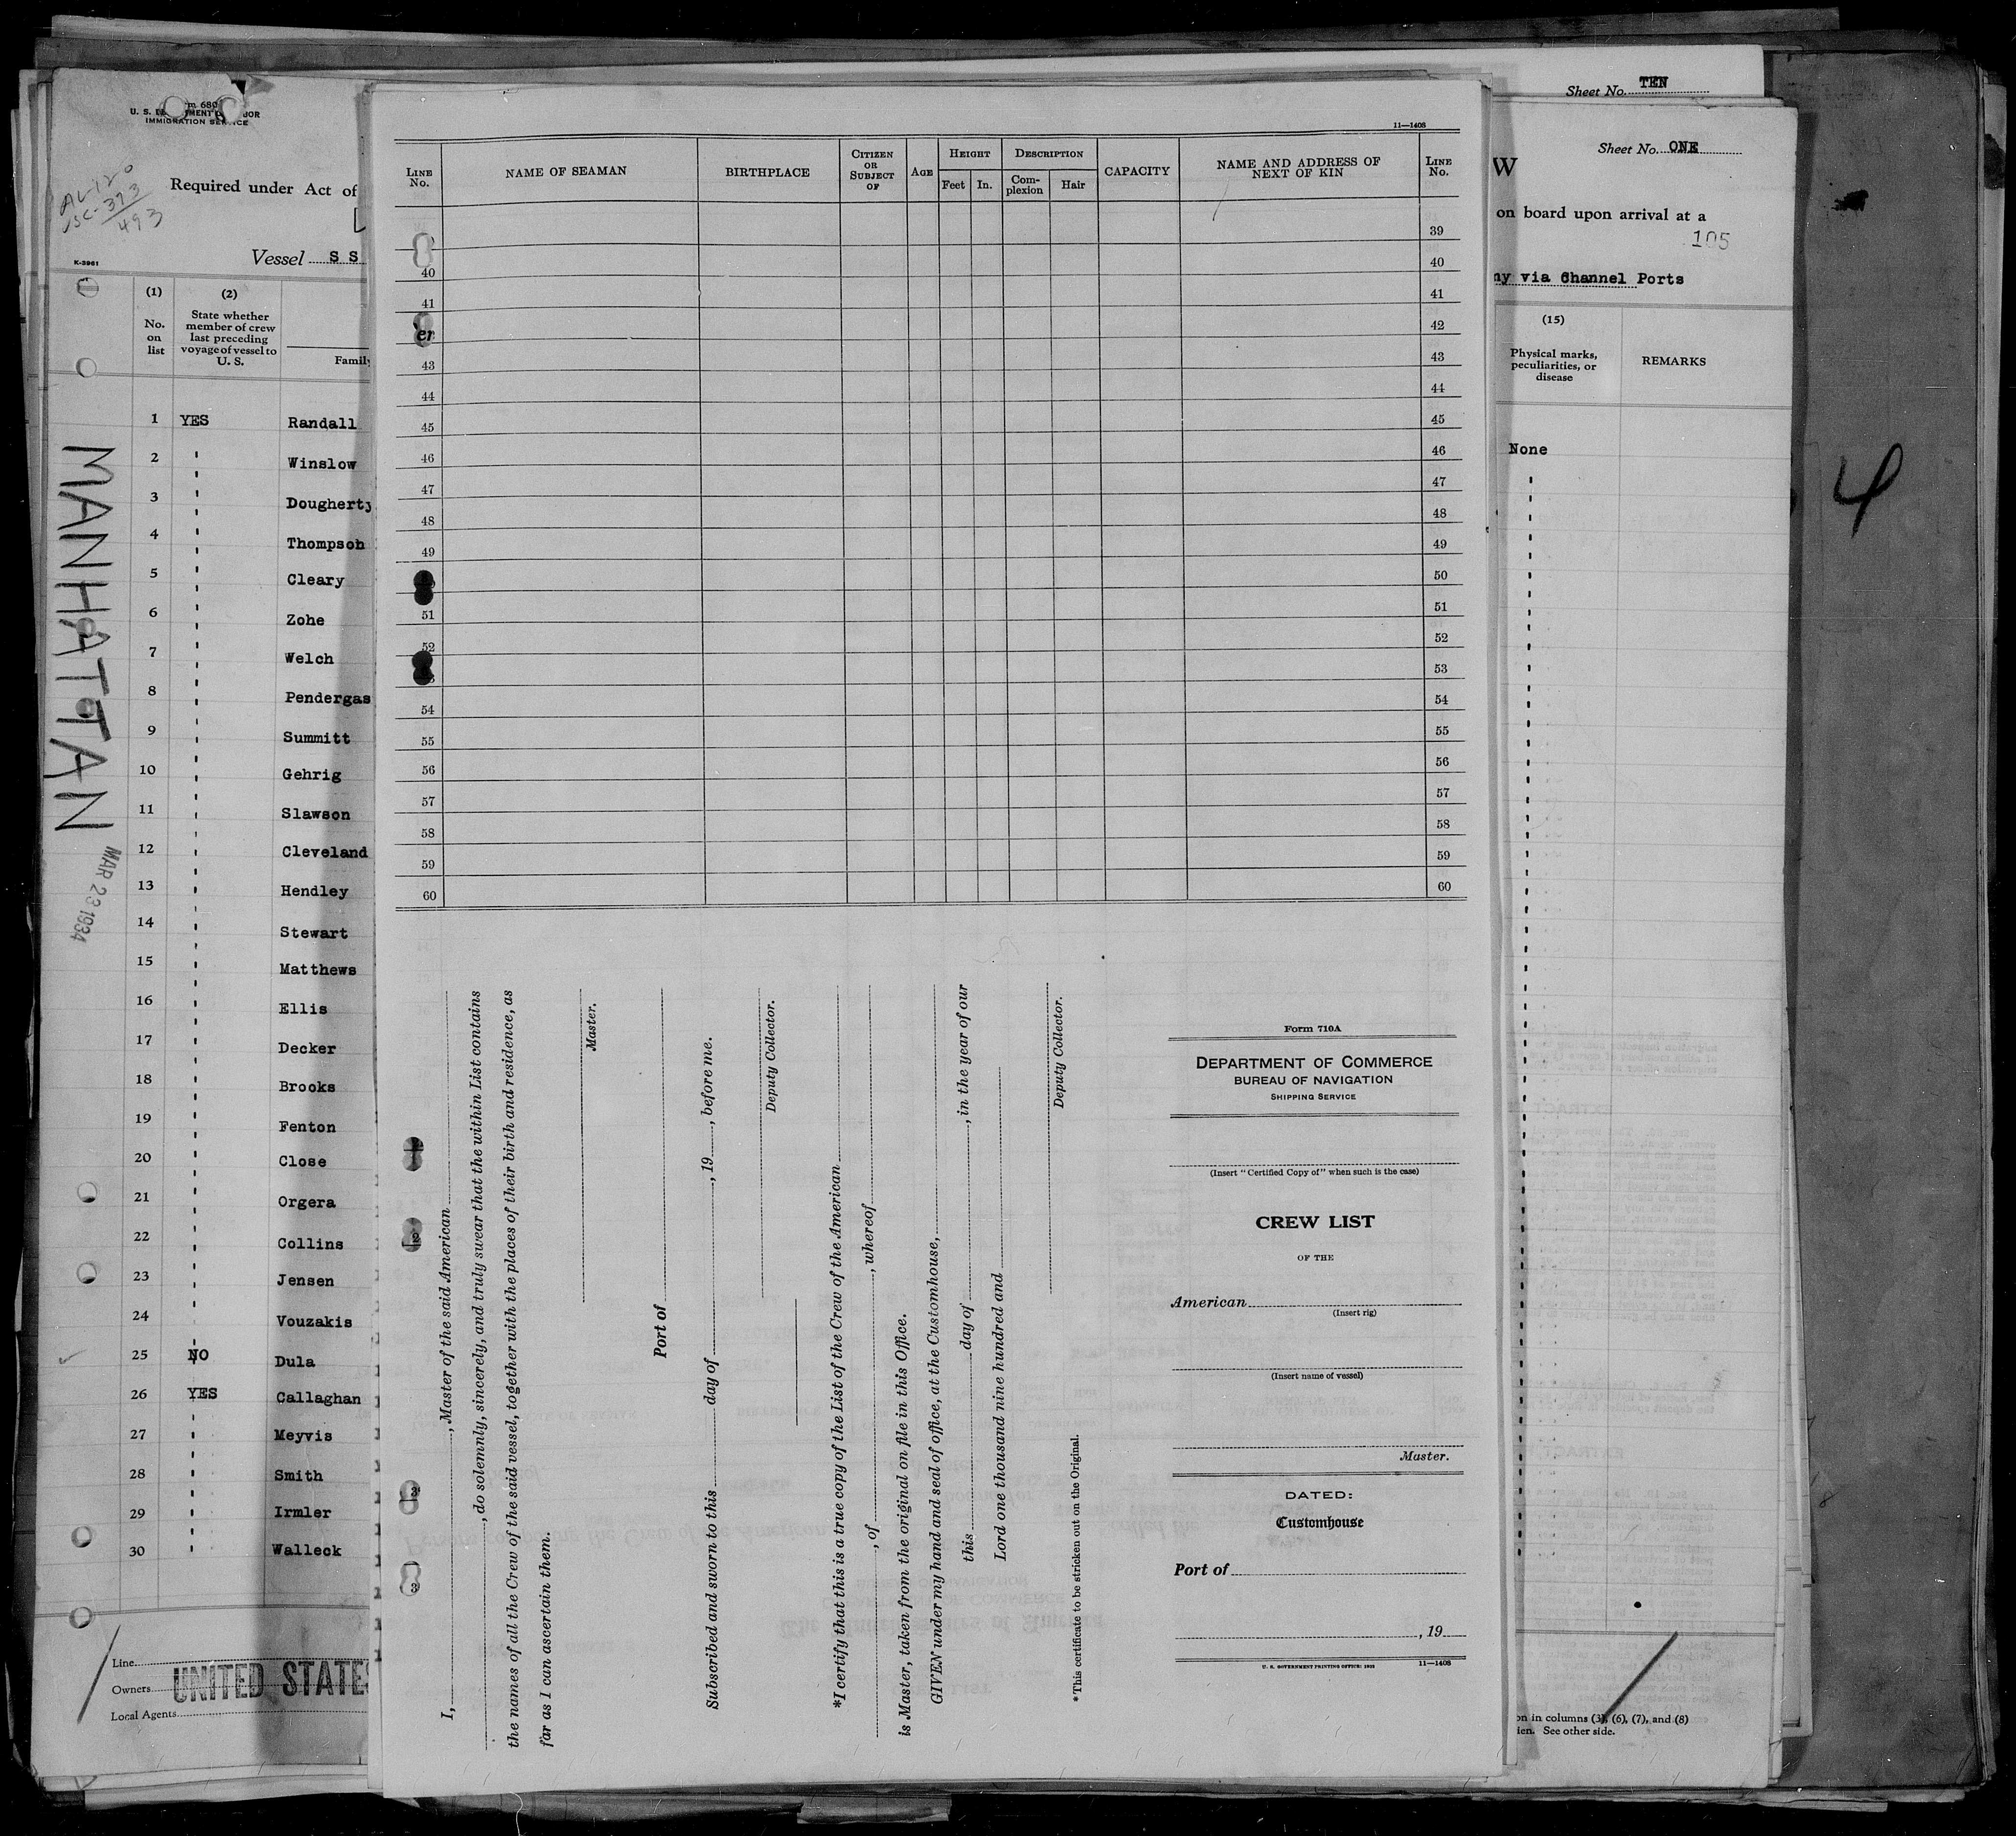 Sheet No. TEN
Sheet No. ONE
W
on board upon arrival at a
105
ny via Channel Ports
(15)
Physical marks,
peculiarities, or
disease
REMARKS
None
4
m 680
U. S. DE MENT BOR
IMMIGRATION SERVICE
AL-120
USC-373
493
Required under Act of
Vessel SS
K-3961
(1)
No.
on
list
(2)
State whether
member of crew
last preceding
voyage of vessel to
U. S.
Family
MANHATTAN
MAR 23 1934
1 YES Randall
2 " Winslow
3 " Dougherty
4 " Thompson
5 " Cleary
6 " Zohe
7 " Welch
8 " Pendergas
9 " Summitt
10 " Gehrig
11 " Slawson
12 " Cleveland
13 " Hendley
14 " Stewart
15 " Matthews
16 " Ellis
17 " Decker
18 " Brooks
19 " Fenton
20 " Close
21 " Orgera
22 " Collins
23 " Jensen
24 " Vouzakis
25 NO Dula
26 YES Callaghan
27 " Meyvis
28 " Smith
29 " Irmler
30 " Walleck
Line
Owners UNITED STATES
Local Agents
11—1408
LINE No.
NAME OF SEAMAN
BIRTHPLACE
CITIZEN OR SUBJECT OF
AGE
HEIGHT
Feet
In.
DESCRIPTION
Complexion
Hair
CAPACITY
NAME AND ADDRESS OF NEXT OF KIN
LINE No.
39
40 40
41 41
er 42
43 43
44 44
45 45
46 46
47 47
48 48
49 49
50
51 51
52 52
53
54 54
55 55
56 56
57 57
58 58
59 59
60 60
I, , Master of the said American
, do solemnly, sincerely, and truly swear that the within List contains
the names of all the Crew of the said vessel, together with the places of their birth and residence, as
far as I can ascertain them.
Master.
Port of
Subscribed and sworn to this day of , 19 , before me.
Deputy Collector.
*I certify that this is a true copy of the List of the Crew of the American
, of , whereof
is Master, taken from the original on file in this Office.
GIVEN under my hand and seal of office, at the Customhouse,
this day of , in the year of our
Lord one thousand nine hundred and
Deputy Collector.
*This certificate to be stricken out on the Original.
Form 710A
DEPARTMENT OF COMMERCE
BUREAU OF NAVIGATION
SHIPPING SERVICE
(Insert "Certified Copy of" when such is the case)
CREW LIST
OF THE
American
(Insert rig)
(Insert name of vessel)
Master.
DATED:
Customhouse
Port of
, 19
U. S. GOVERNMENT PRINTING OFFICE: 11—1408
on in columns (3), (6), (7), and (8)
ien. See other side.